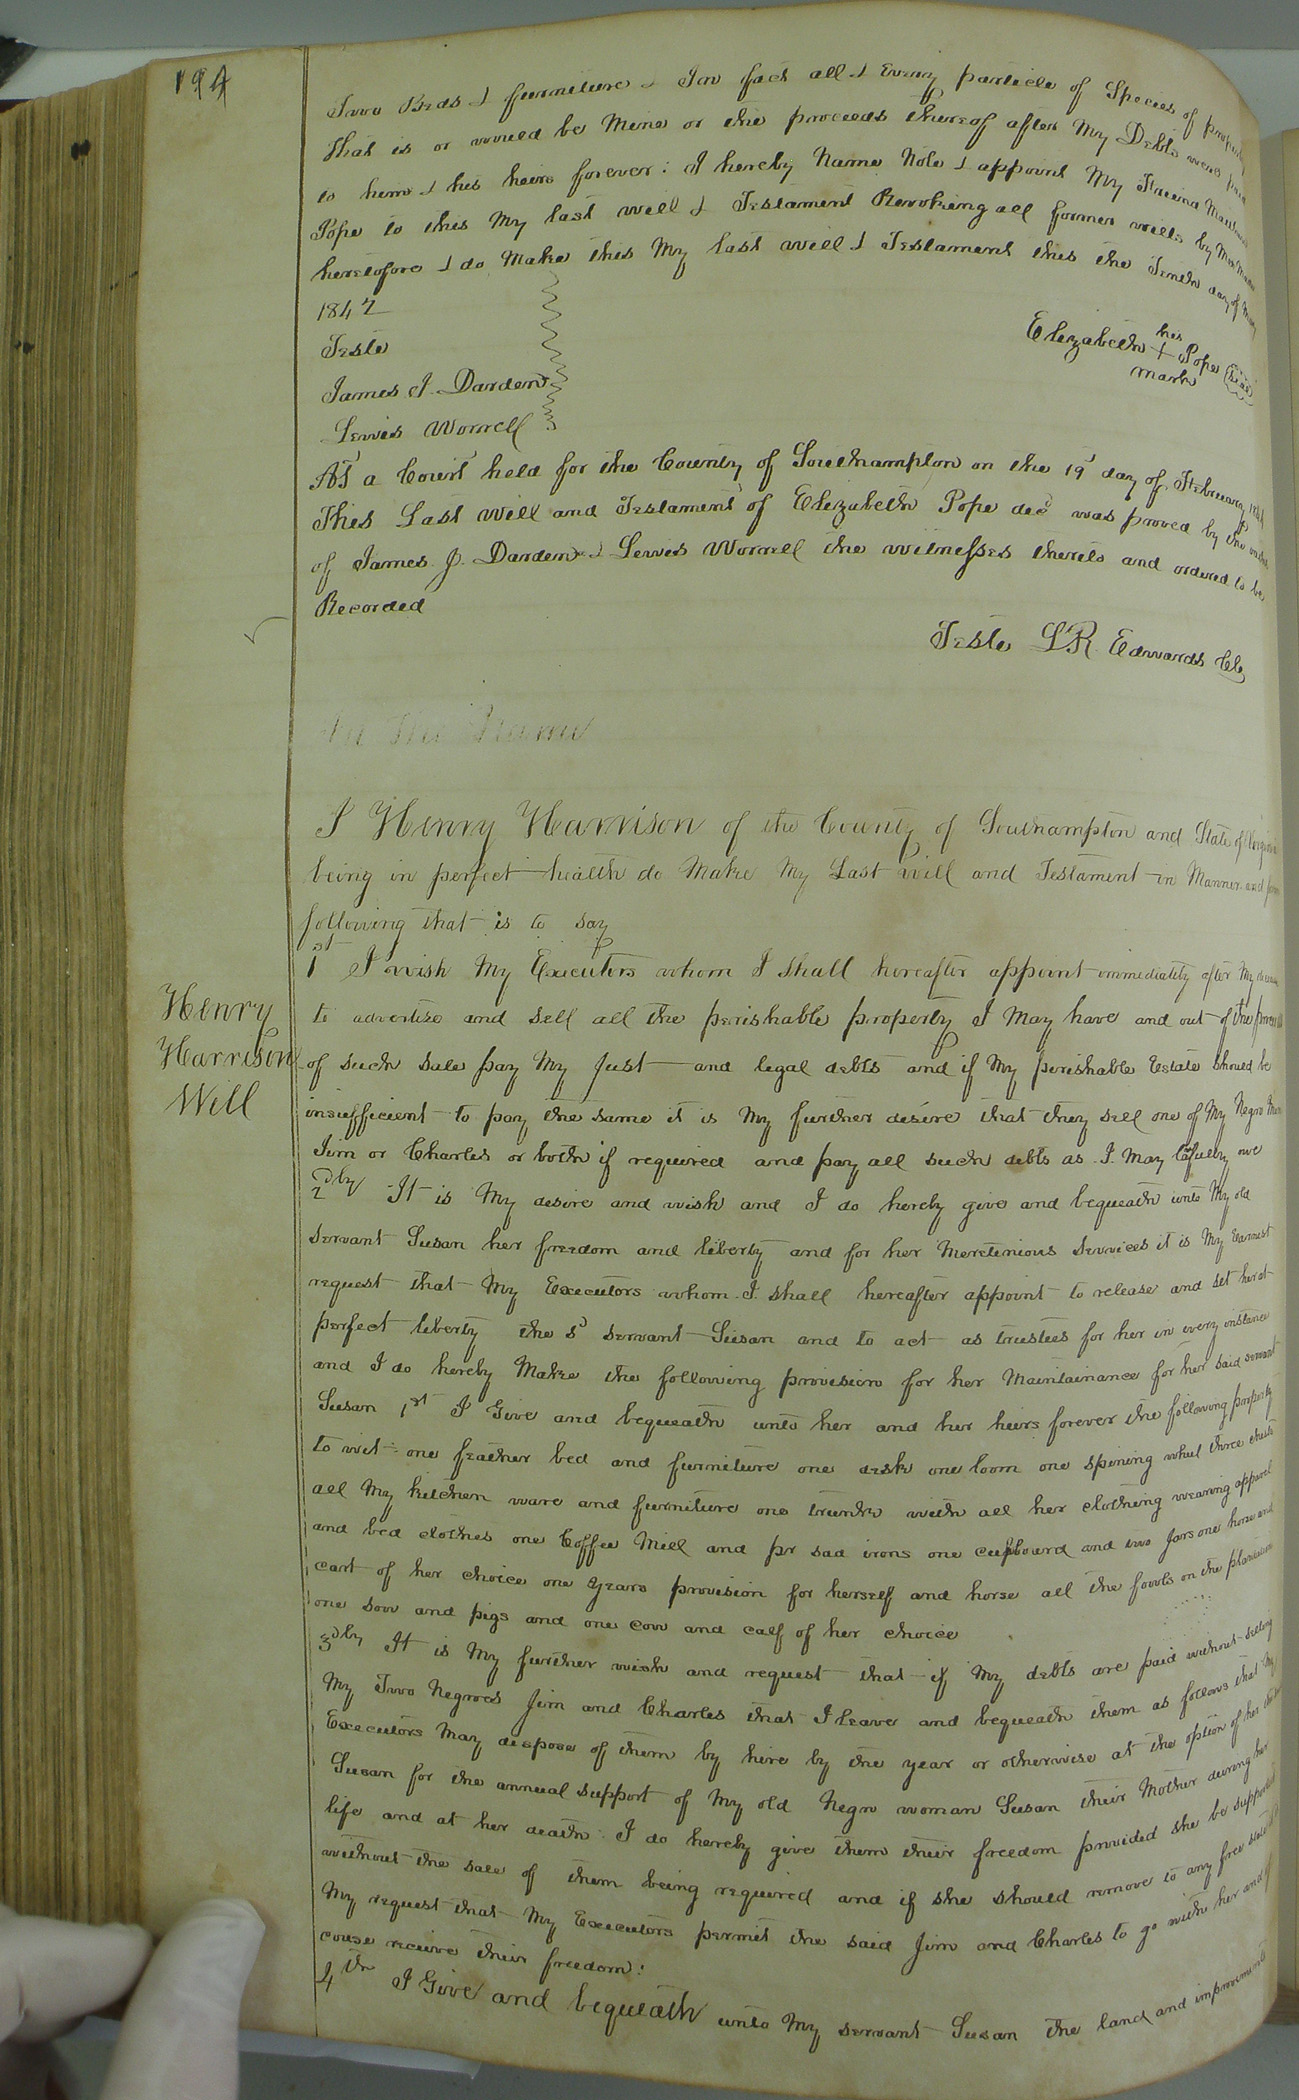 194
Two Beds & furniture & In fact all & Every particle of Species of property
that is or would be Mine or the proceeds thereof after My Debts were paid
to him & his heirs forever: I hereby Name Note & appoint My Friend
Pope to this My last will & Testament Revoking all former wills by Me Made
heretofore & do Make this My last will & Testament this the Tenth day of
1847
Teste
James J. Darden
Lewis Worrell
his
Elizabeth + Pope (Seal)
mark
At a Court held for the County of Southampton on the 19 day of February
This Last Will and Testament of Elizabeth Pope decd was proved by the oaths
of James J. Darden & Lewis Worrell the witnesses thereto and ordered to be
Recorded
Teste L R Edwards Clk
In the Name
I Henry Harrison of the County of Southampton and State of Virginia
being in perfect health do Make My Last will and Testament in Manner and form
following that is to say
Henry
Harrison
Will
1st I wish My Executors whom I shall hereafter appoint immediately after My
to advertize and sell all the perishable property I May have and out of the proceeds
of such sale pay My Just and legal debts and if My perishable Estate should be
insufficient to pay the same it is My further desire that they sell one of My Negro Men
Jim or Charles or both if required and pay all such debts as I May lafully owe
2dly It is My desire and wish and I do hereby give and bequeath unto My old
servant Susan her freedom and liberty and for her Meretinious services it is My Earnest
request that My Executors whom I shall hereafter appoint to release and set her at
perfect liberty the sd servant Susan and to act as trustees for her in every instance
and I do hereby Make the following provision for her Maintainance for her said servant
Susan 1st I Give and bequeath unto her and her heirs forever the following property
to wit: one feather bed and furniture one desk one loom one spining wheel three chests
all My kitchen ware and furniture one trunk with all her clothing wearing apparel
and bed clothes one Coffee Mill and pr sad irons one cupboard and two Jars one horse and
cart of her choice one years provision for herself and horse all the fowls on the plantation
one sow and pigs and one cow and calf of her choice
3dly It is My further wish and request that if My debts are paid without selling
My Two Negroes Jim and Charles that I leave and bequeath them as follows that My
Executors May dispose of them by hire by the year or otherwise at the option of her the
Susan for the annual support of My old Negro woman Susan their Mother during her
life and at her death I do hereby give them their freedom provided she be supported
without the sale of them being required and if she should remove to any free state
My request that My Executors permit the said Jim and Charles to go with her and of
couse receive their freedom:
4th I Give and bequeath unto My servant Susan the land and improvements